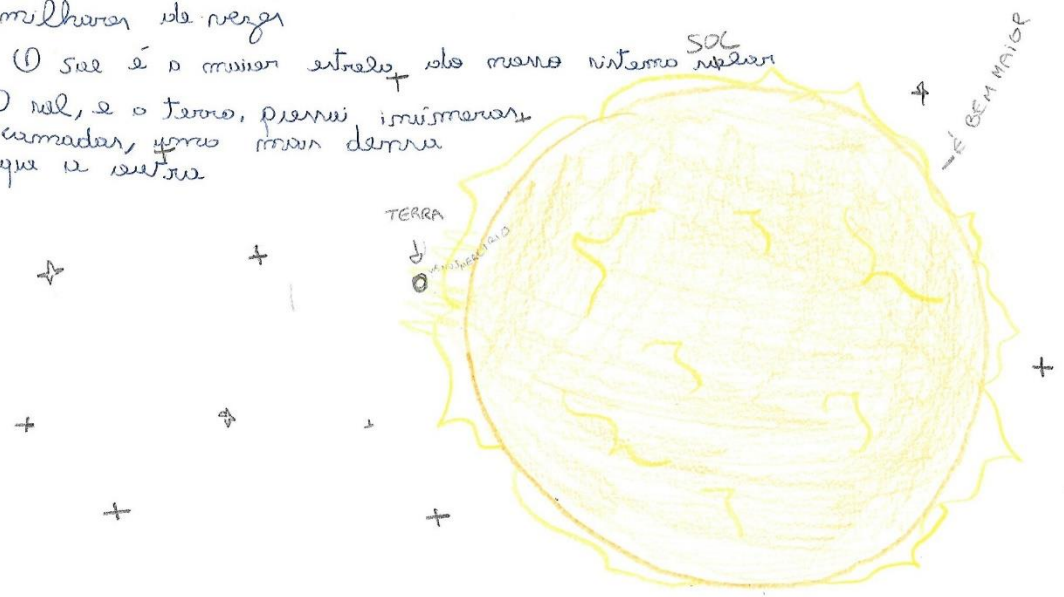 milhares de vezes
O sol é a maior estrela do nosso sistema solar
O sol, e a terra, possui inúmeras
camadas, uma mais densa
que a outra
SOL
É BEM MAIOR
TERRA